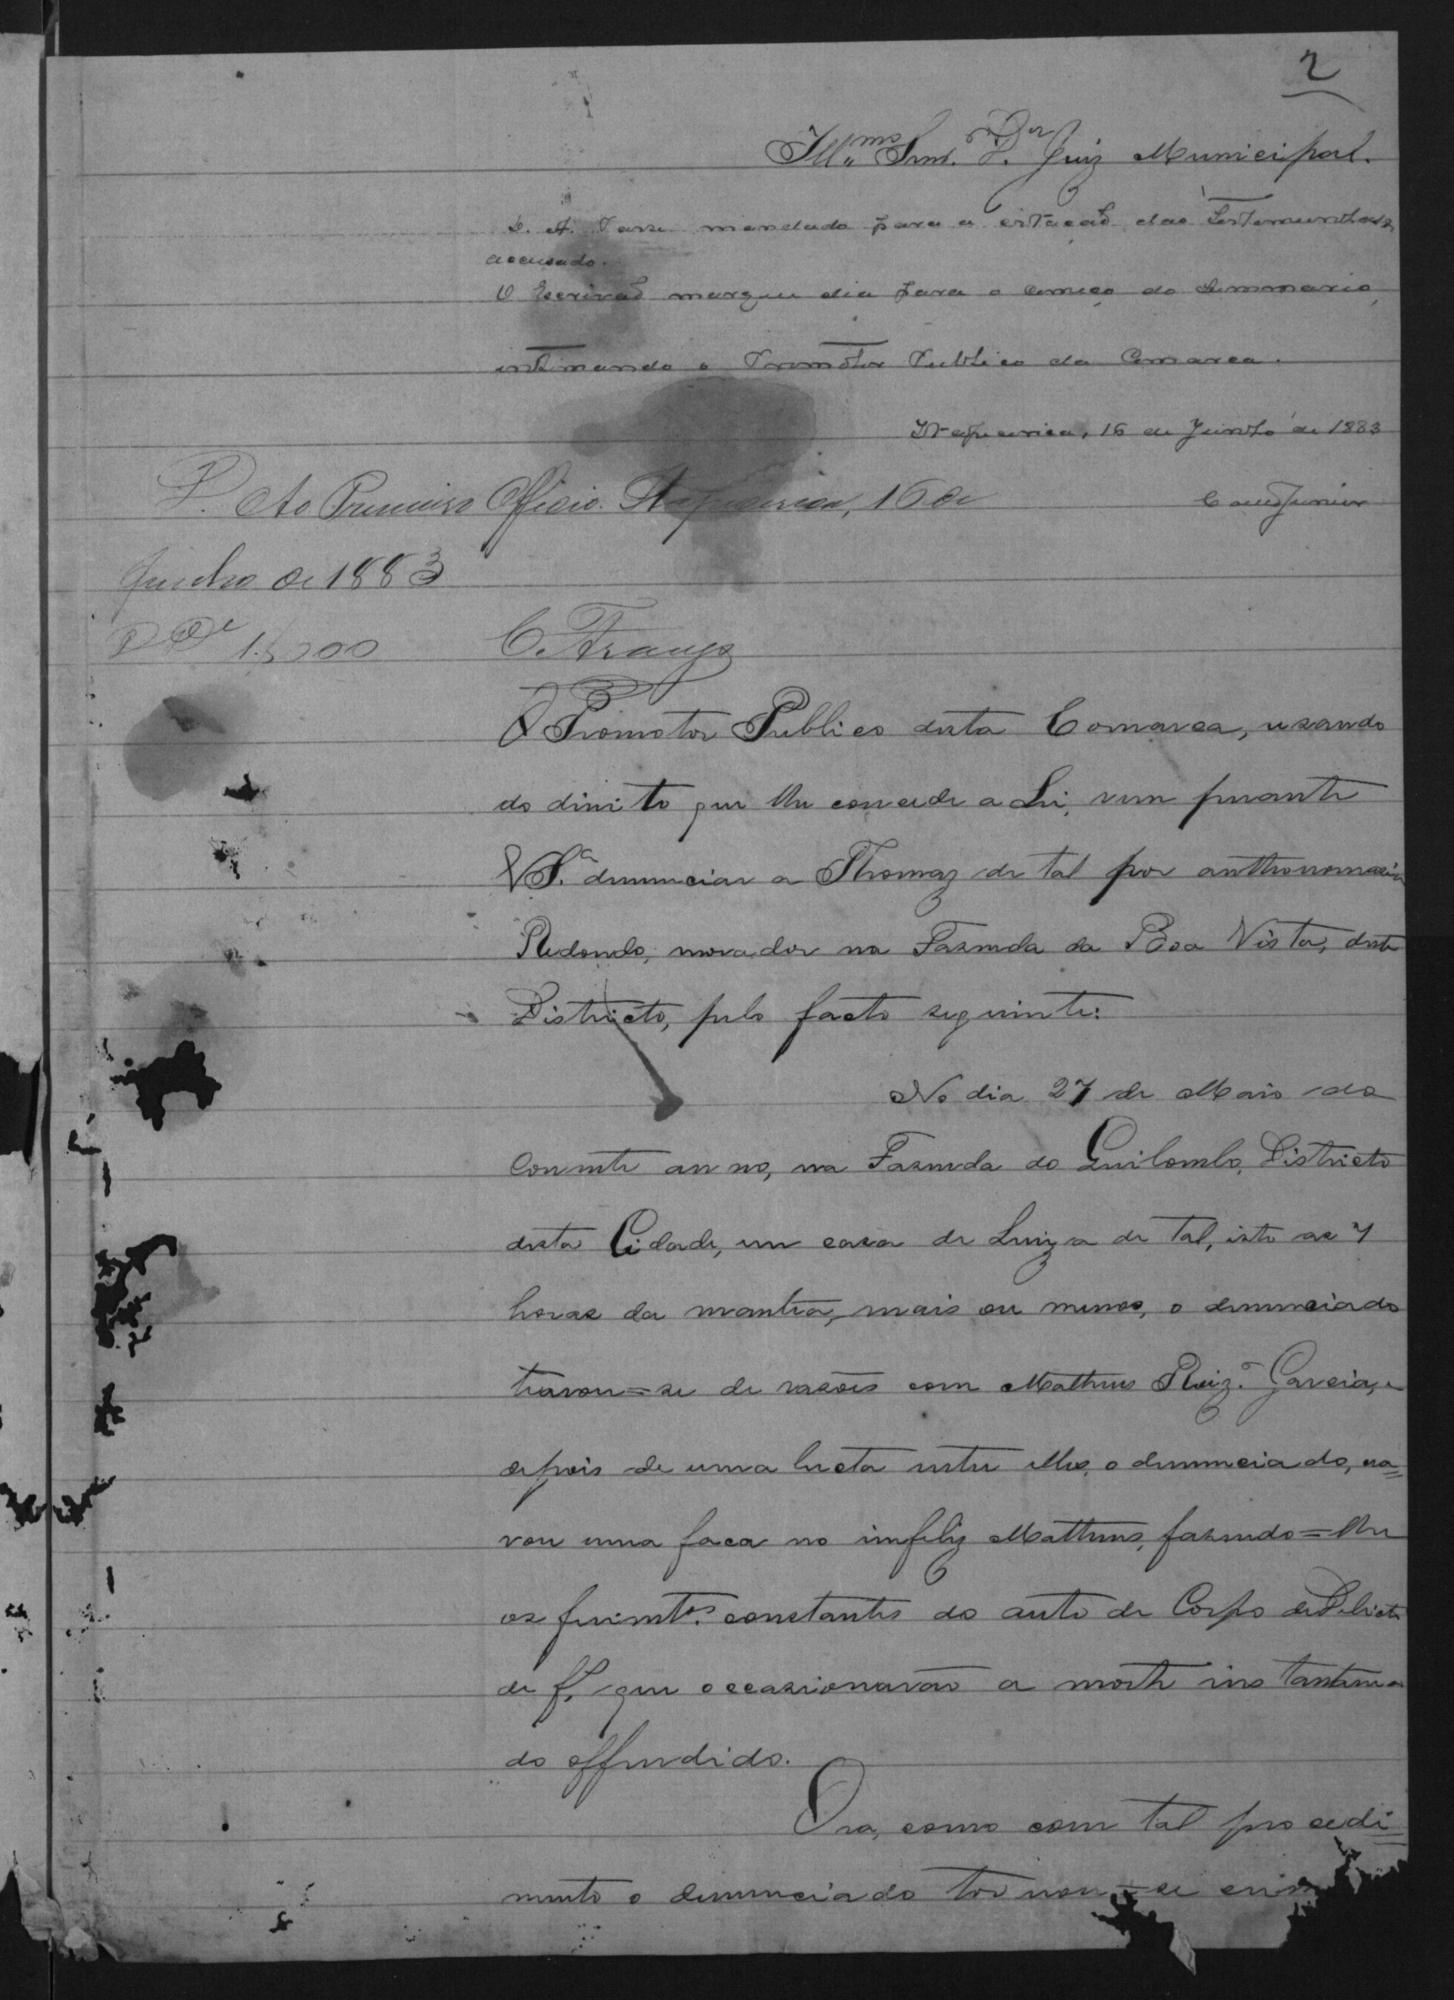 2
Illmo Snr. Dr. Juiz Municipal.
D. A. Passe mandado para a citação das testemunhas
accusado.
O Escrivão marque dia para o começo do Summario,
intimando o Promotor Publico da Comarca.
Itapecerica, 16 de Junho de 1883
D. Ao Primeiro Officio. Itapecerica, 16 de
Junho de 1883
C. Araujo
O Promotor Publico desta Comarca, usando
do direito que lhe concede a Lei, vem perante
VSa. denunciar a Thomaz de tal por anthonomasia
Redondo, morador na Fazenda da Boa Vista, deste
Districto, pelo facto seguinte:
No dia 27 de Maio do
corrente anno, na Fazenda do Quilombo, Districto
desta Cidade, em casa de Luiza de tal, isto as 7
horas da manhã, mais ou menos, o denunciado
travou=se de rasões com Matheus Roiz. Garcia, e
depois de uma lucta entre elles, o denunciado, cra=
vou uma faca no infeliz Matheus, fazendo=lhe
os ferimtos. constantes do auto de Corpo de Delicto
de f. que occasionarão a morte instantanea
do offendido.
Ora, como com tal procedi=
mento o denunciado tornou=se